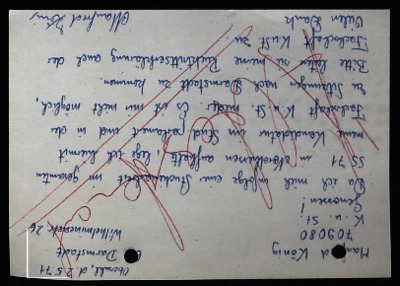 Manfred König
709080
K u. St.
Oberall, d. 2.5.71
Darmstadt
Wilhelminenstr. 26
Genossen!
Da ich mich infolge einer Studienarbeit im gesamten
SS 71 in aufhalte, lege ich hiermit
meine Kandidatur im Stud. parlament und in der
Fachschaft K. u. St. nieder. Es ist mir nicht möglich,
zu Sitzungen nach Darmstadt zu kommen.
Bitte leiten zu meine Rücktrittserklärung auch der
Fachschaft K u St. zu.
Vielen Dank
Manfred König